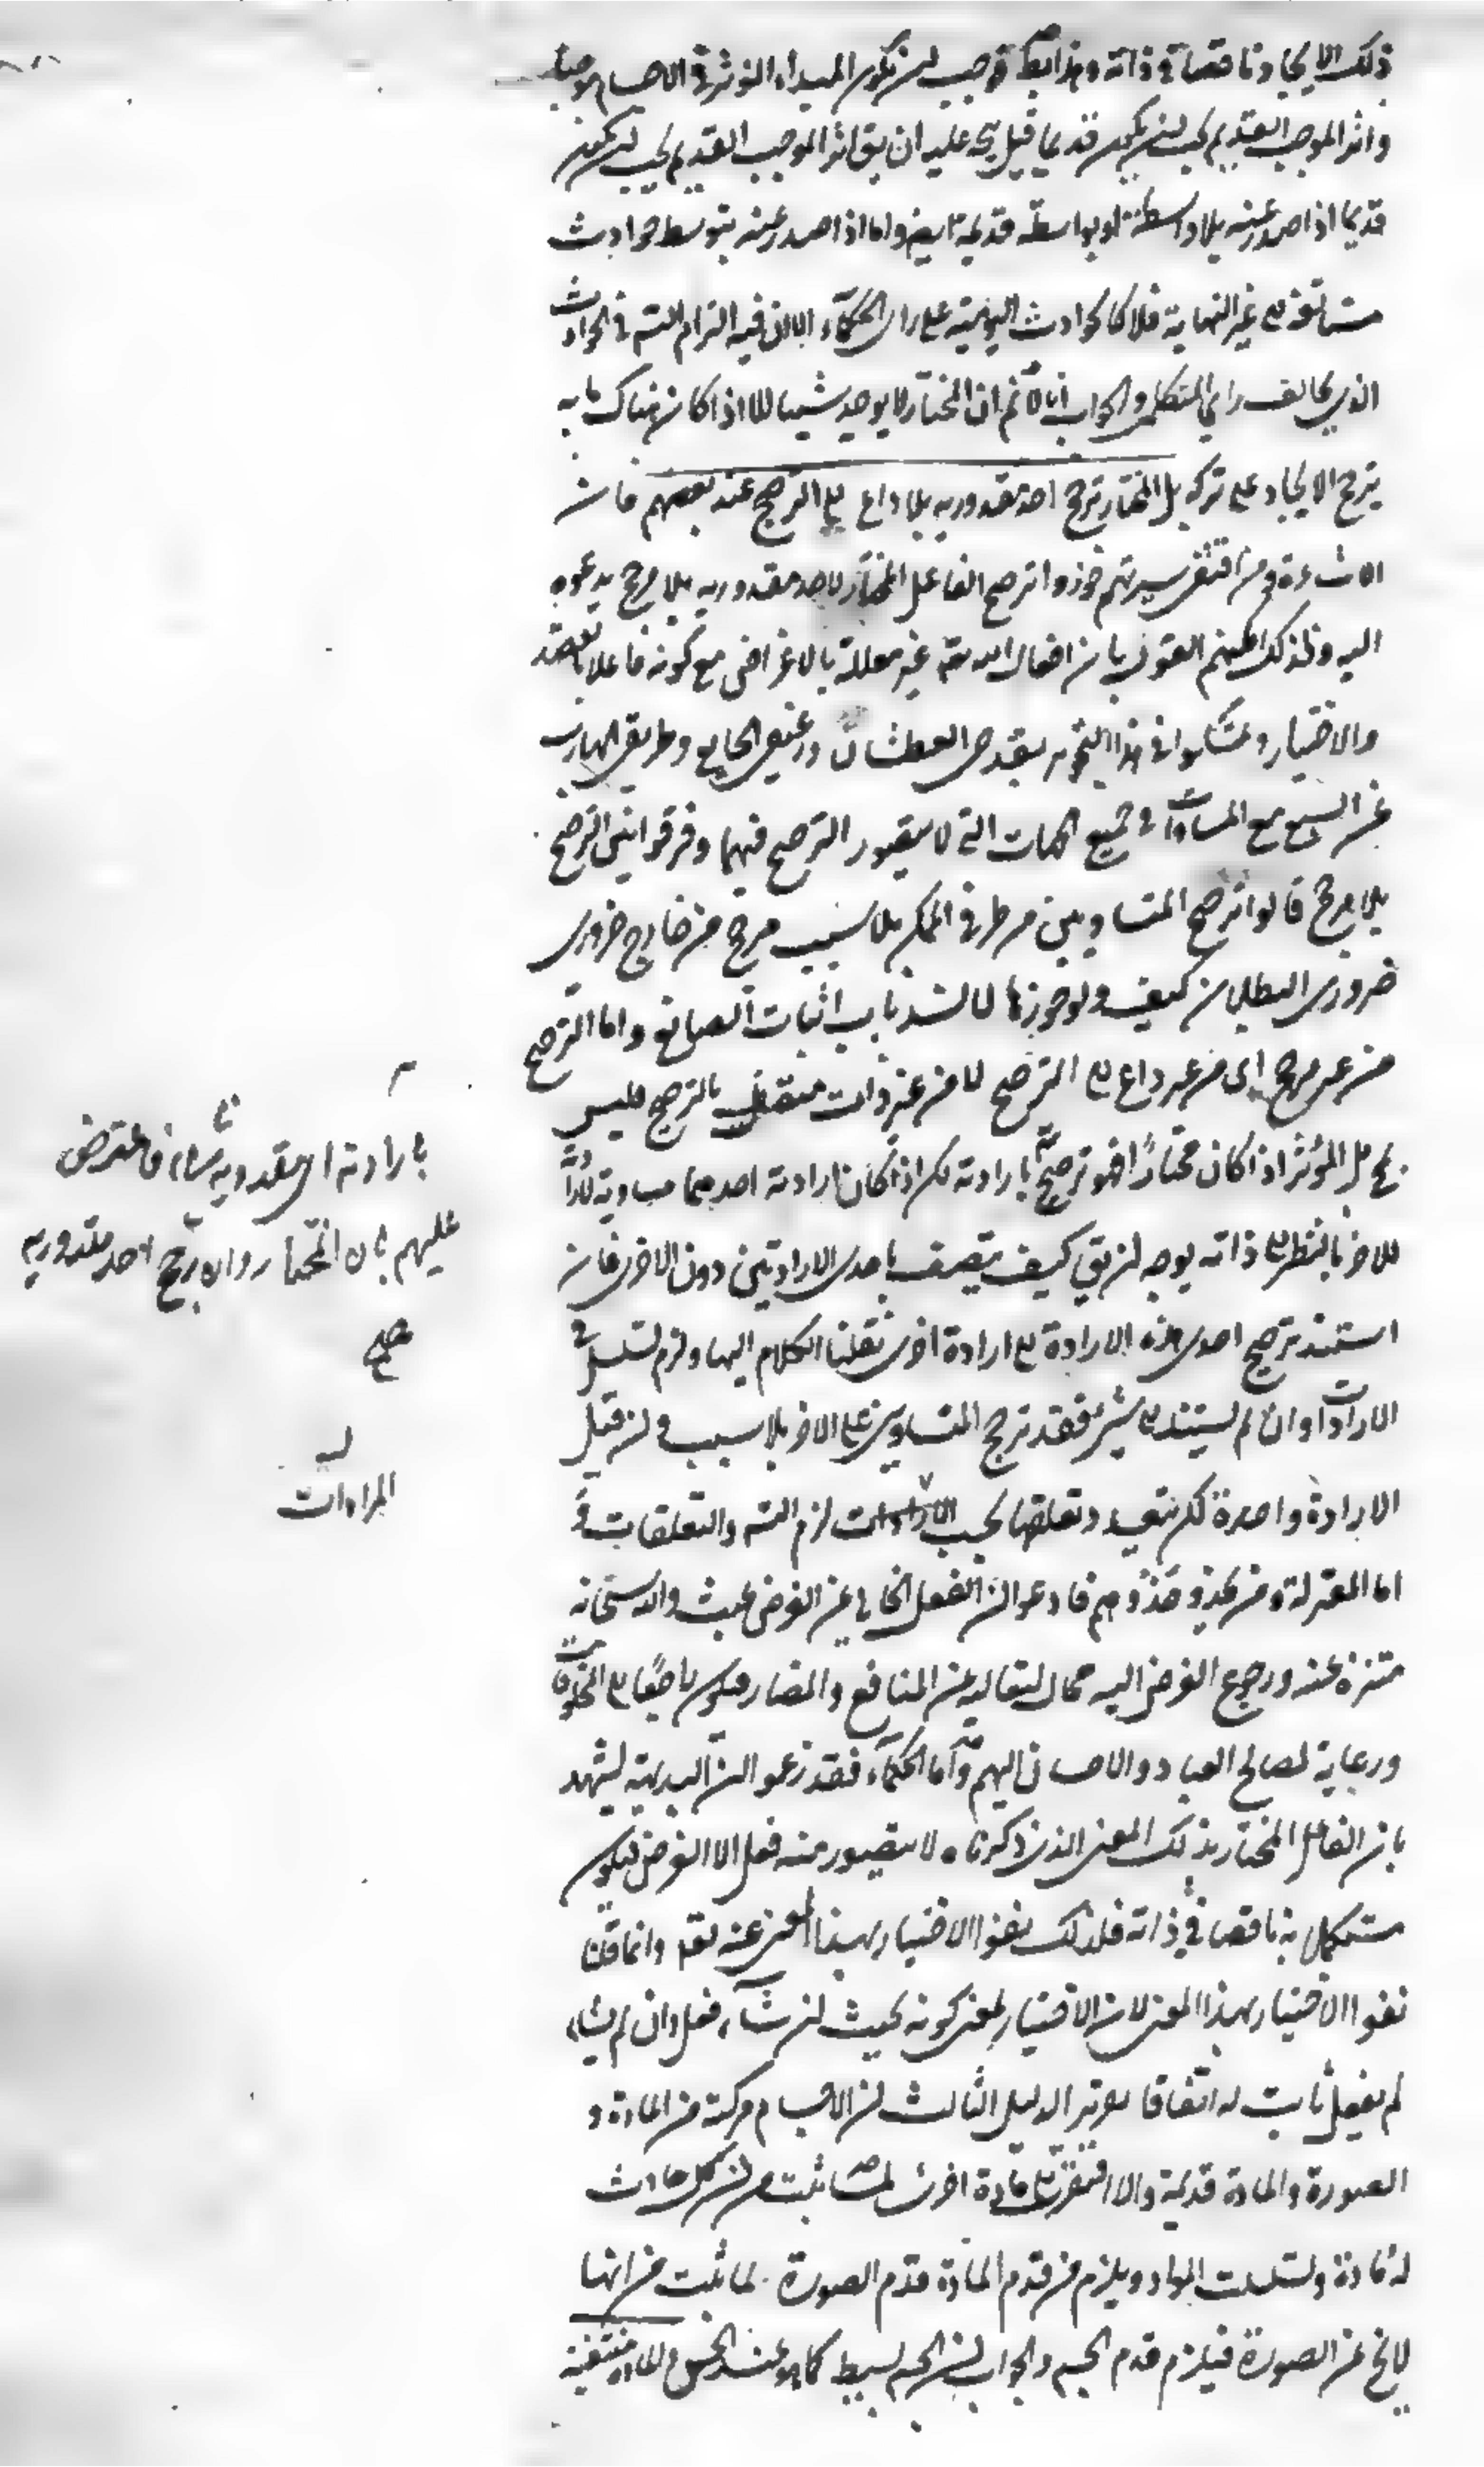 ذلك الايجاد ناقصا في ذاته وهذا ايضا توجب ان يكون المبداء المؤثر في الاجسام
واثر الموجب القديم يجب ان يكون قديما قيل يتجه عليه ان يق اثر الموجب القديم يجب ان يكون
قديما اذا صدر عنه بلا واسطة او بواسطة قديمة ايضا واما اذا صدر عنه بتوسط حوادث
متعاقبة الى غير النهاية فلا كالحوادث اليومية على راى الحكماء الا ان فيه التزام التسه في الحوادث
الذي يخالف راي المتكلمين والجواب انا لا نم ان المختار لا يوجد شيئا الا اذا كان هناك ما به
يترجح الايجاد على تركه بل المختار يرجح احد مقدوريه بلا داع الى الترجيح عند بعضهم فان
الاشاعرة ومن اقتفى سيرتهم جوزوا ترجيح الفاعل المختار لاحد مقدوريه بلا مرجح يدعوه
اليه ولذلك امكنهم القول بان افعال الله تعه غير معللة بالاغراض مع كونه فاعلا بالقصد
والاختيار وتمسكوا في هذا التجويز بقدحي العطشان ورغيفي الجايع وطريقي الهارب
عن السبع مع المساواة في جميع الجهات التي لا يتصور الترجيح فيها وفرقوا بين الترجيح
بلا مرجح قالوا ترجح المتساويين من طرفي الممكن بلا سبب مرجح من خارج ضروري
ضروري البطلان كيف ولو جوزنا لانسد باب اثبات الصانع واما الترجيح
من غير مرجح اى من غير داع الى الترجيح لا من غير ذات متصف بالترجيح فليس
بمح بل المؤثر اذا كان مختارا فهو ترجيح بارادته لكن اذا كان ارادته احدهما مساوية لارادته
للاخر بالنظر الى ذاته يوجه ان يق كيف يتصف باحدى الارادتين دون الاخرى فان
استند ترجيح احدى هذه الارادة الى ارادة اخرى نقلنا الكلام اليها ولزم تسلسل في
الارادات وان لم يستند الى شيء فقد ترجح المتساويين على الاخر بلا سبب ولئن قيل
الارادة واحدة لكن يتعدد تعلقها بحسب الارادات لزم التسه والتعلقات و
اما المعتزلة ومن يحذو حذوهم فادعوا ان الفعل الخالي عن الغرض عبث والله سبحانه
متنزه عنه ورجوع الغرض اليه محال لتعاليه عن المنافع والمضار فيكون راجعا الى المخلوقات
ورعاية لمصالح العباد والاحسان اليهم واما الحكماء فقد زعموا ان البديهة تشهد
بان الفاعل المختار بذلك المعنى الذي ذكرناه لا يتصور منه فعل الا لغرض فيكون
مستكملا به ناقصا في ذاته فلذلك نفوا الاختيار بهذا المعنى عنه تعه وانما قلنا
نفوا الاختيار بهذا المعنى لان الاختيار بمعنى كونه بحيث ان شاء فعل وان لم يشاء
لم يفعل ثابت له اتفاقا تقرير الدليل الثالث ان الاجسام مركبة من المادة و
الصورة والمادة قديمة والا افتقرت الى مادة اخرى لما ثبت من ان كل حادث
له مادة وتسلسلت المواد ويلزم من قدم المادة قدم الصورة لما ثبت من انها
لا تخ عن الصورة فيلزم قدم الجسم والجواب ان الجسم بسيط كما هو عند الحس والمادة منتفية
بارادته اى مقدوريه شاء فاعترض
عليهم بان المختار وان رجح احد مقدوريه
صح
المرادات